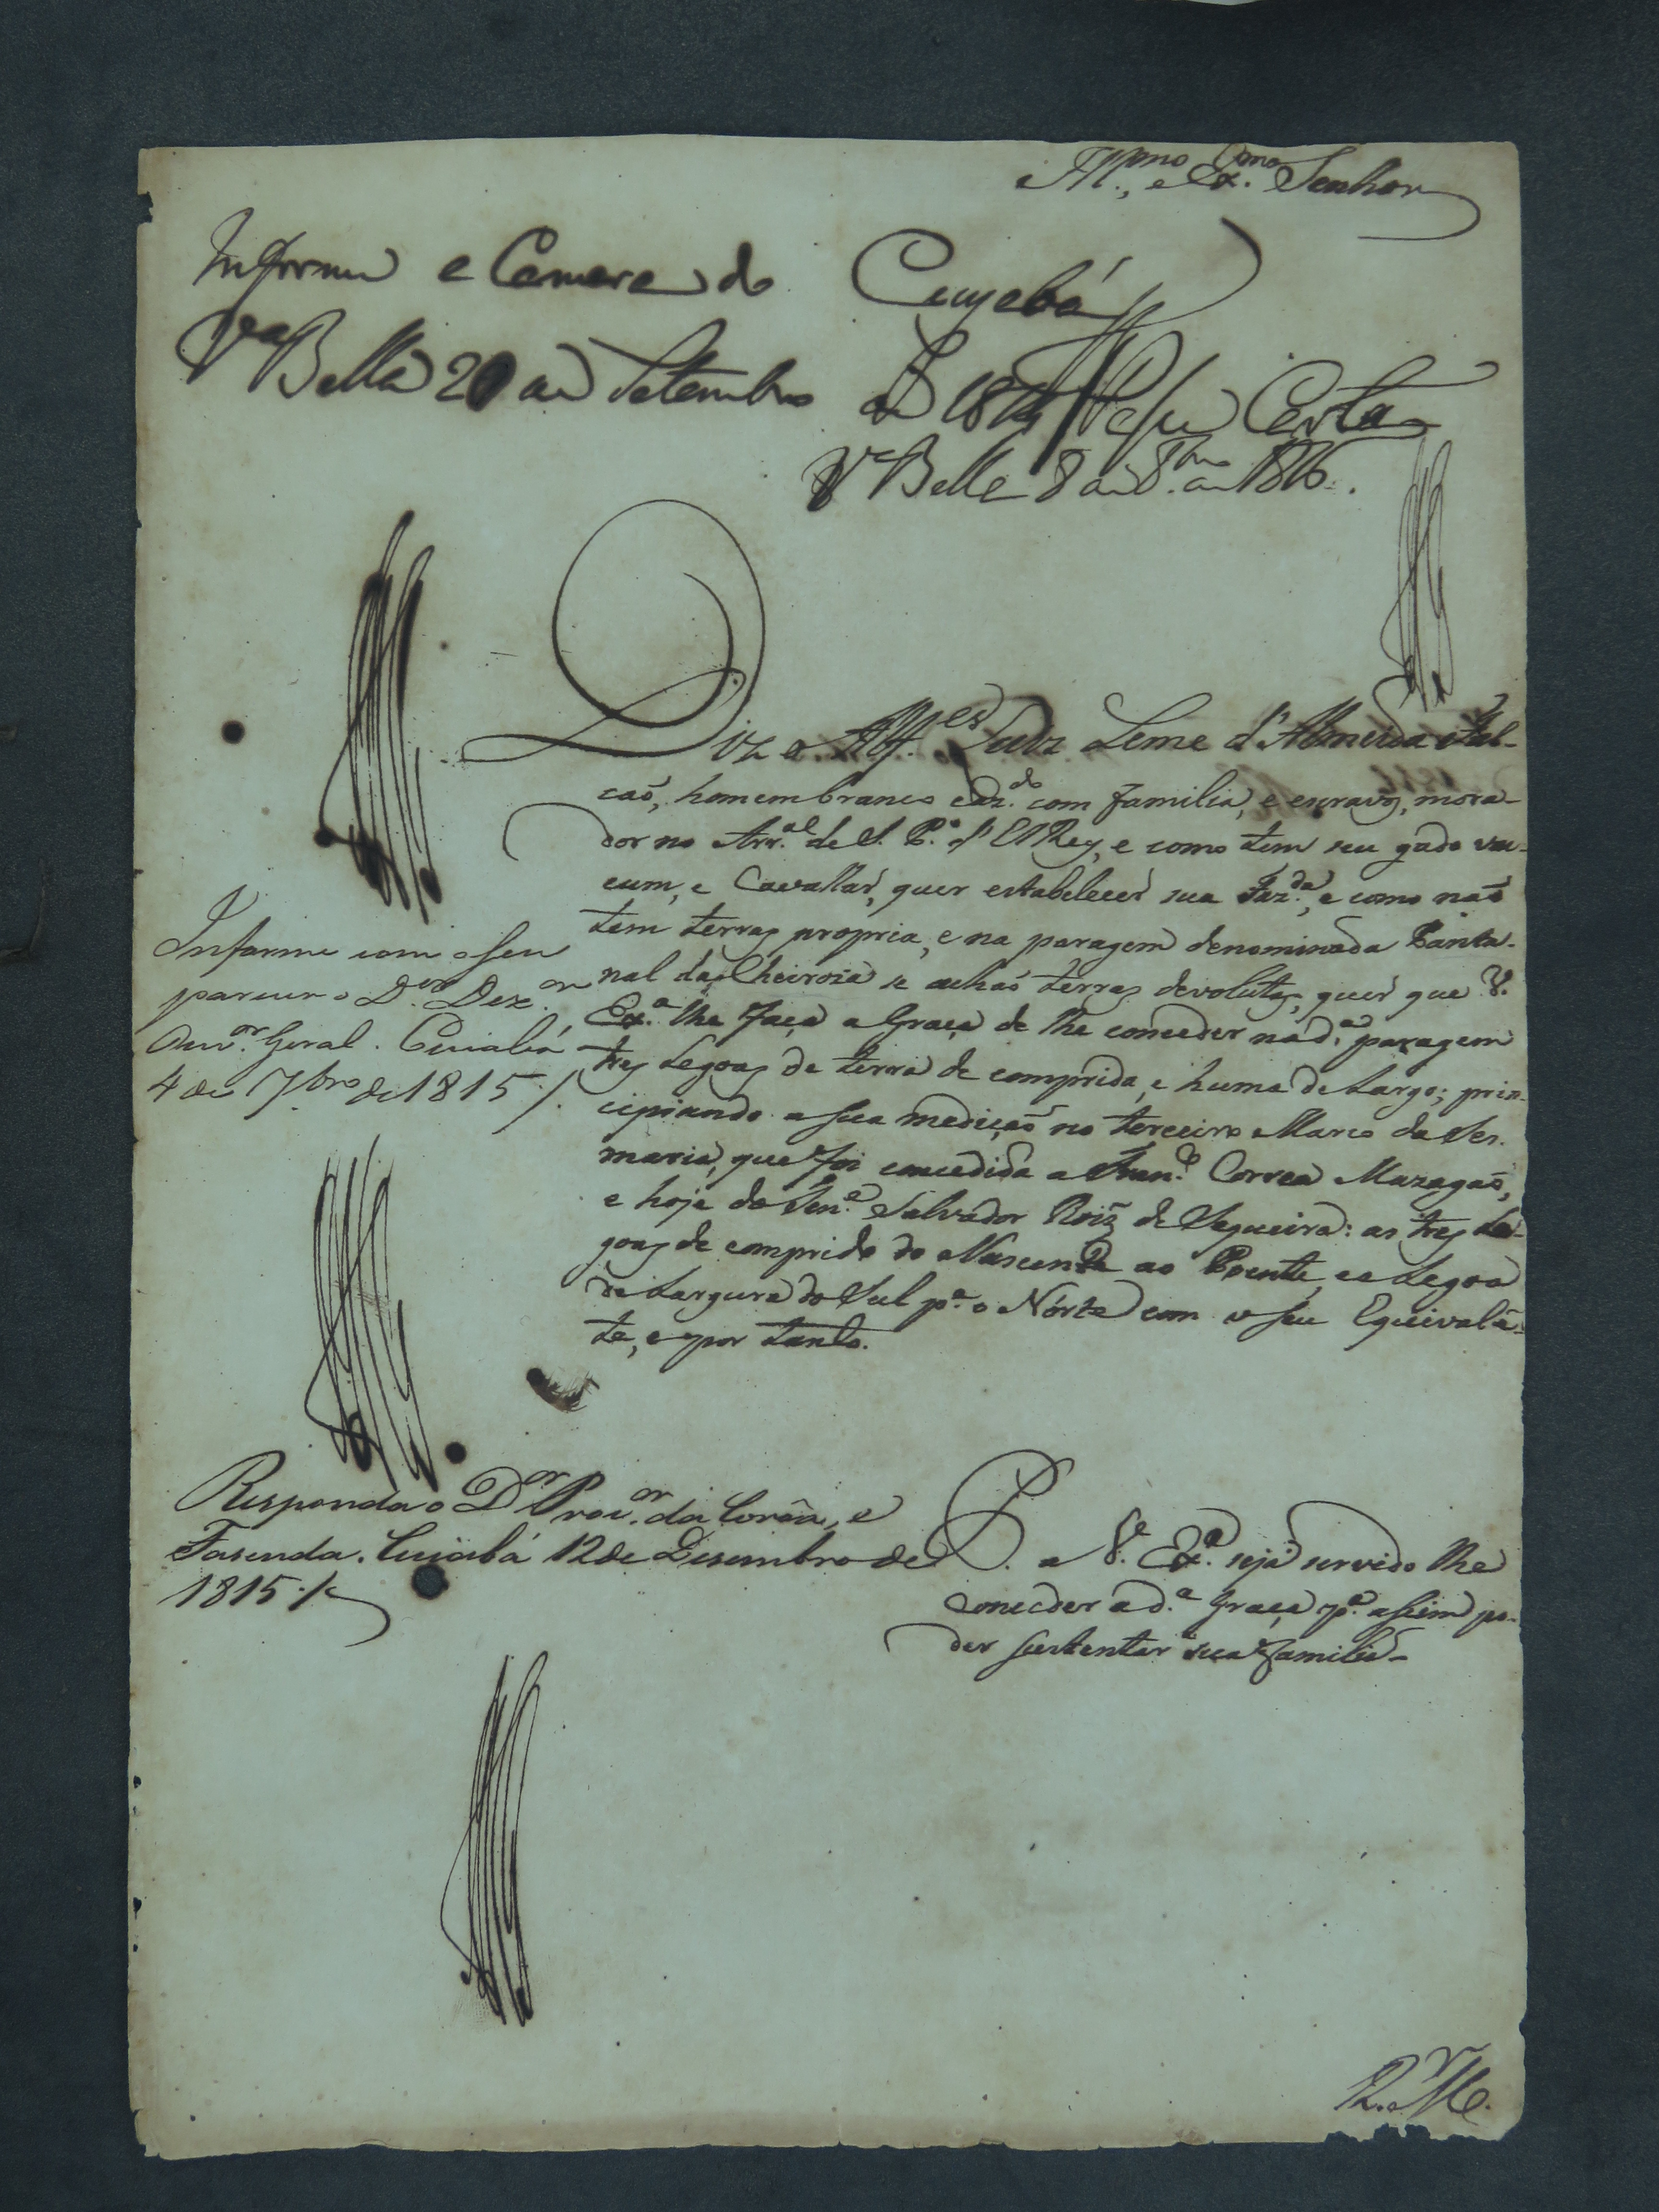 Ill.mo, e Ex.mo Senhor
Informe a Camara do Cuyabá
Va Bella 20 de Setembro de 1814
Passe Carta
Va Bella 8 de 8.bro de 1816.
Diz o Alf.es Luiz Leme d'Almeida Fal-
caõ, homem branco caz.do com familia, e escravos, mora-
dor no Arr.al de S. P.o d'ElRey, e como tem seu gado vac-
cum, e Cavallar, quer estabelecer sua Faz.da, e como naõ
tem terras propria, e na paragem denominada Panta-
nal das Cheiroza se achaõ terras devolutas, quer que V.
Ex.a lhe faça a Graça de lhe conceder na d.a paragem
tres Legoas de terra de comprida, e huma de Largo; prin-
cipiando a sua mediçaõ no terceiro Marco da Ses-
maria, que foi concedida a Fran.co Correa Mazagaõ,
e hoje do Ten.e Salvador Roiz de Sequeira: as tres Le-
goas de comprido do Nascente ao Poente, e a Legoa
de Largura do Sul p.a o Nórte com o seu Equivalẽ-
te, e por tanto.
Informe com o seu
parecer o D.or Dez.or
Ouv.or Geral. Cuiabá
4 de 7bro de 1815 /.
Responda o D.or Proc.or da Corôa, e
Fasenda. Cuiabá 12 de Desembro de
1815 /.
P. a V. Ex.a seja servido lhe
conceder a d.a Graça p.a assim po-
der sustentar sua familia-
R. M.